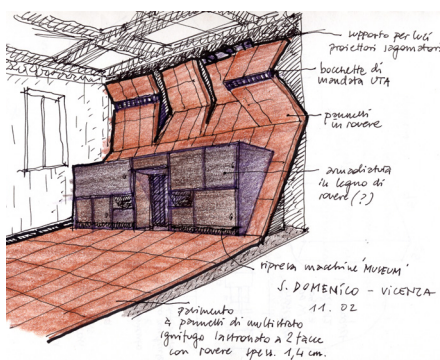 supporto per luci
proiettori sagomatori
bocchette di
mandata UTA
pannelli
in rovere
armadiatura
in legno di
rovere (?)
ripresa macchine 'MUSEUM'
S. DOMENICO - VICENZA
11. 02
pavimento
a pannelli di multistrato
ignifugo lastronato a 2 facce
con rovere spess. 1,4 cm.